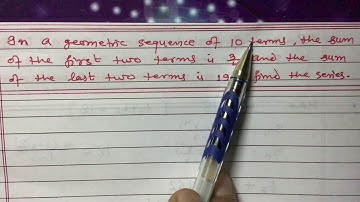 In a geometric sequence of 10 terms, the sum
of the first two terms is and the sum
of the last two terms is find the series.